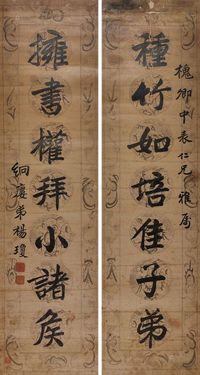 槐卿中表仁兄雅屬
種竹如培佳子弟
擁書權拜小諸侯
絅庭弟楊瓊